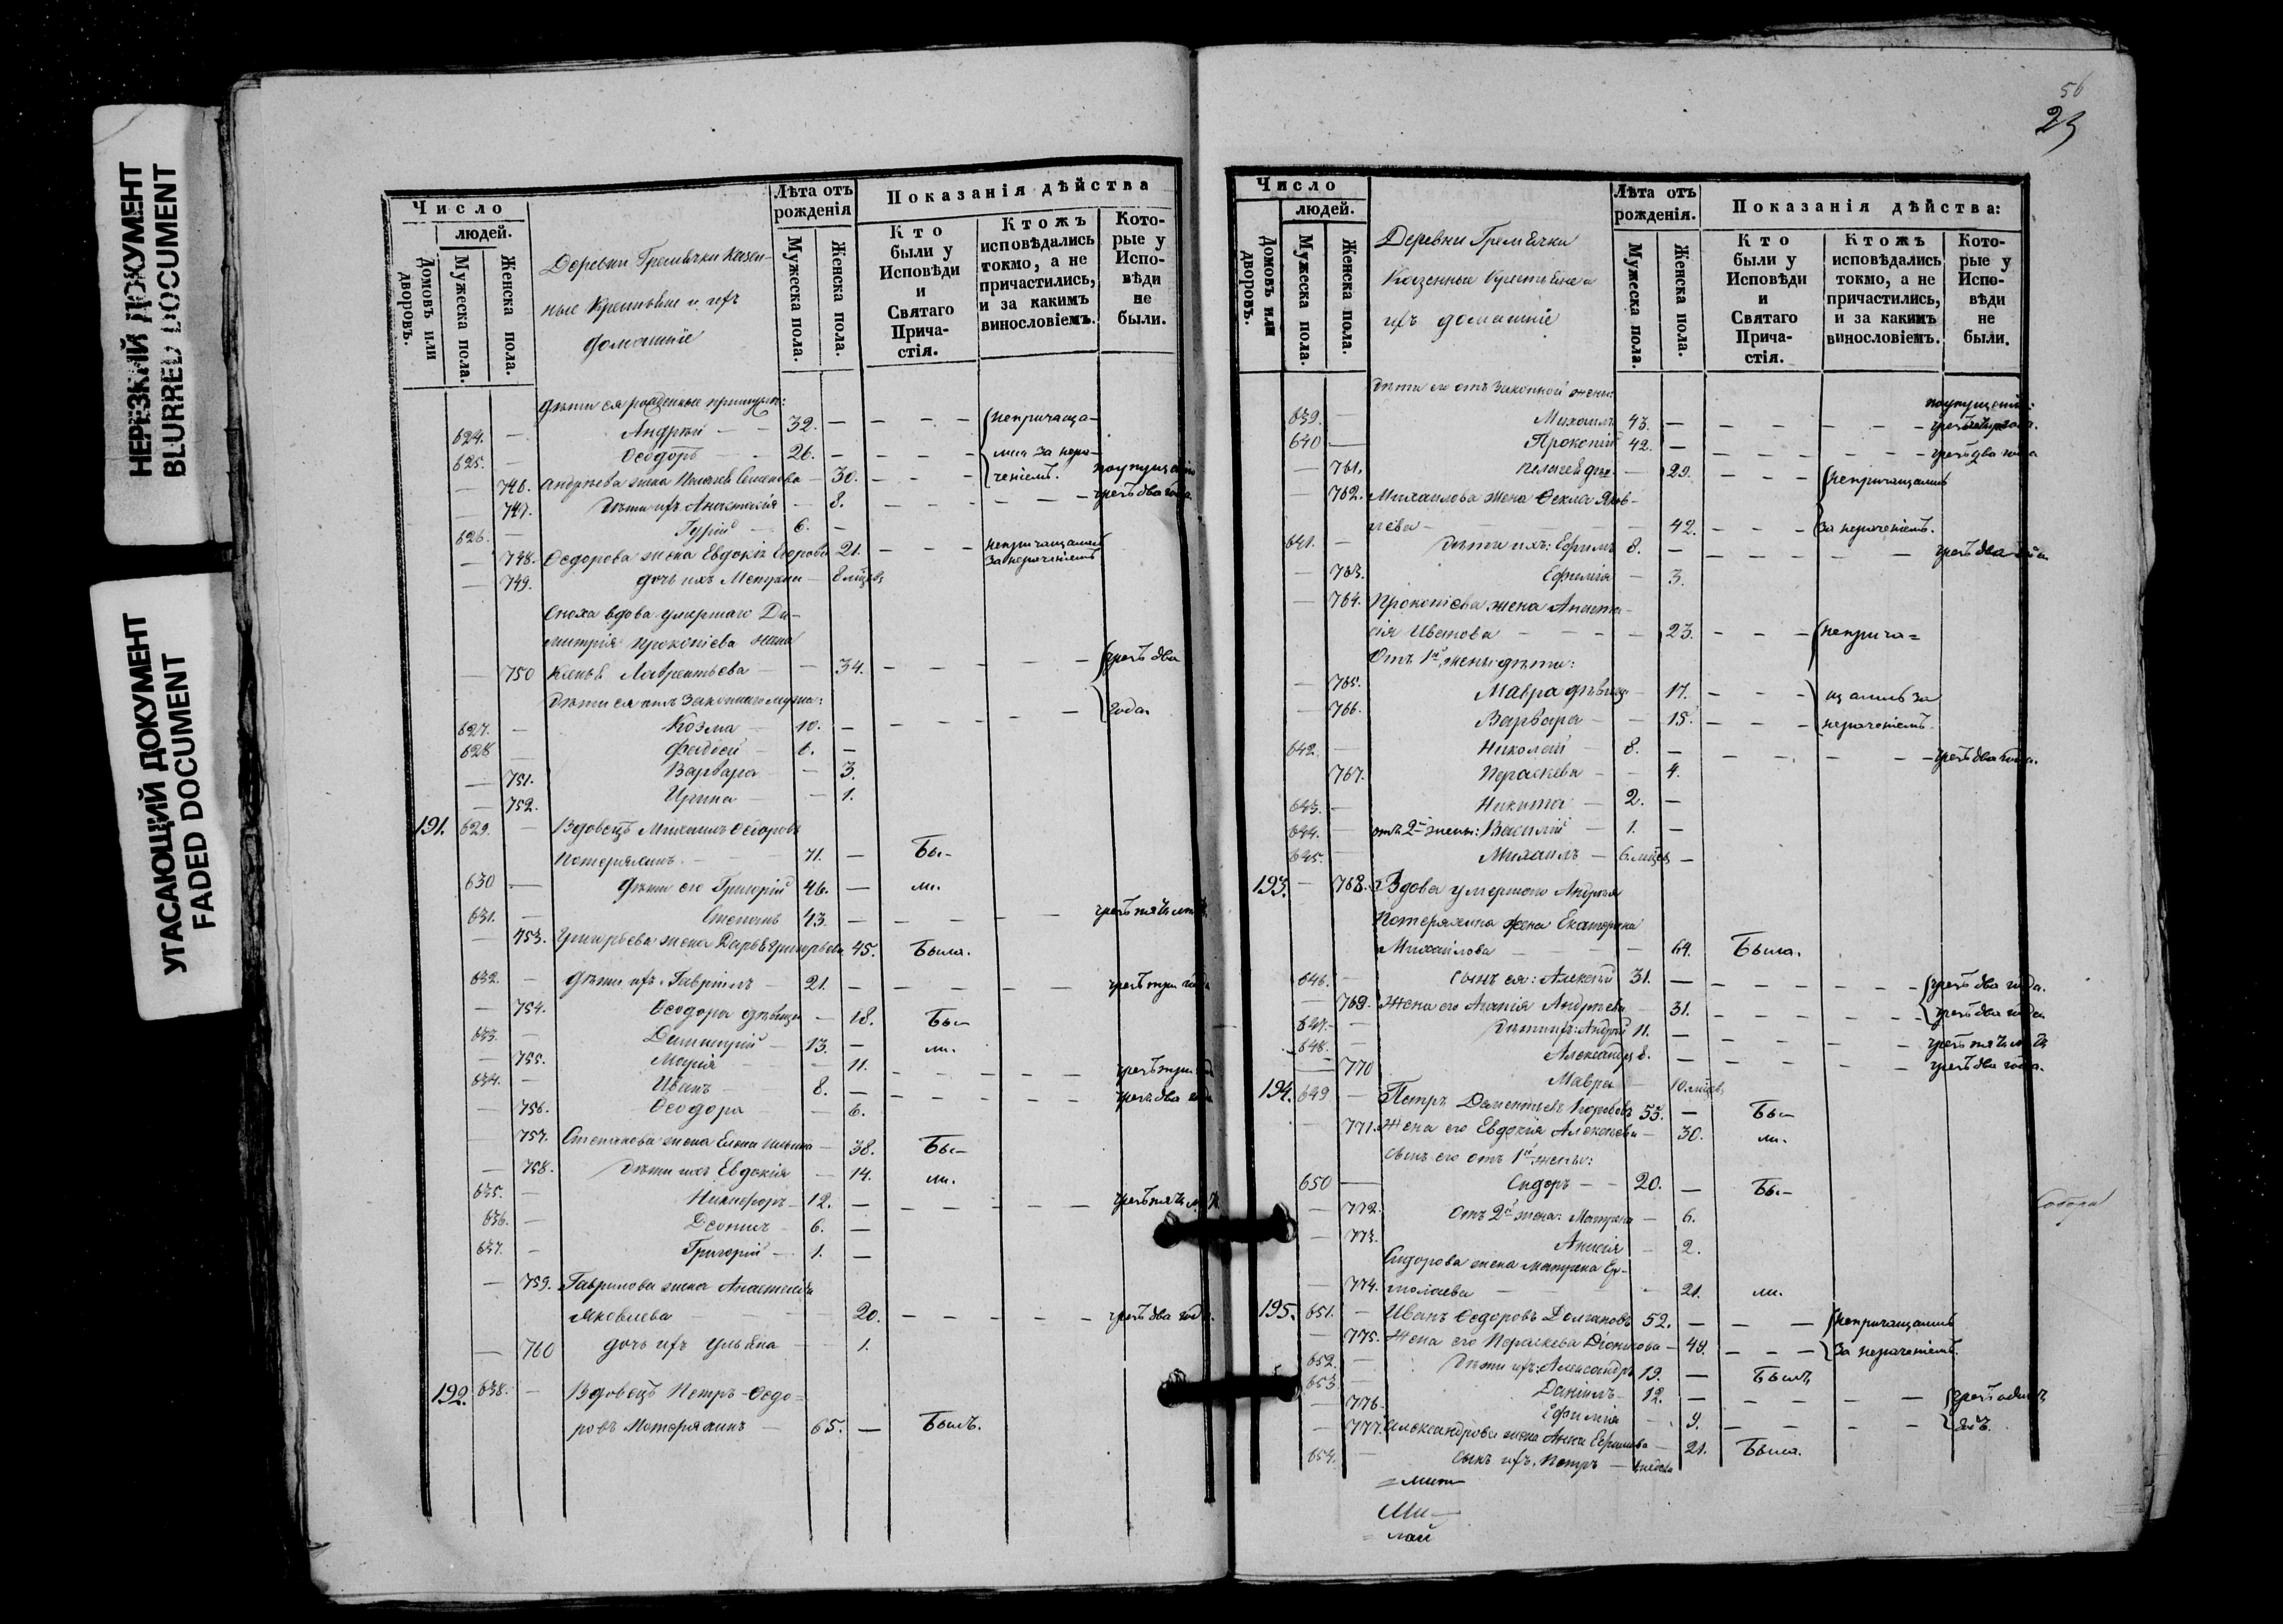 НЕРЕЗКИЙ ДОКУМЕНТ
BLURRED DOCUMENT
УГАСАЮЩИЙ ДОКУМЕНТ
FADED DOCUMENT
Число
людей.
Домовъ или дворовъ.
Мужеска пола.
Женска пола.
Деревни Гремячки Казен-
ные Крестьяне и ихъ
домашніе
Лѣта отъ
рожденія
Мужеска пола.
Женска пола.
Показанія дѣйства
Кто
были у
Исповѣди
и
Святаго
Прича-
стія.
Ктожъ
исповѣдались
токмо, а не
причастились,
и за какимъ
винословіемъ.
Кото-
рые у
Испо-
вѣди
не
были.
Дѣти ея рожденные
624. — Андрей — 32. — — — — непричаща-
625. — Ѳеодоръ — 26. — — — — лись за нера-
— 746. Андреева жена Семенова — 30. — — — ченіемъ.
— 747. Дѣти ихъ Анастасія — 8. — — — — — чрезъ два года
626. — Гурій — 6. —
— 748. Ѳеодорова жена Евдокія Егорова 21. — — — непричащалась
за нераченіемъ
— 749. дочь ихъ — 8 мѣсяц.
Сноха вдова умершаго Ди-
митрія Прокопіева жена
— 750 Лаврентьева — — 34. — — — — — чрезъ два
Дѣти ея отъ законнаго мужа:
627. — Козма — 10. — — — — — — года
628 — —
— 751. Варвара — — 3.
— 752. Ирина — — 1.
191. 629. — Вдовецъ Михаилъ Ѳедоровъ
Потеряхинъ — 71. — Бы-
630 — Дѣти его Григорій 46. — ли.
631. — Степанъ 43. — — — — — чрезъ пять лѣтъ
— 753. Григорьева жена Дарья Григорьева 45. Была.
632. — Дѣти ихъ Гавріилъ — 21. — — — — — чрезъ три года
— 754. Ѳеодора дѣвица — 18. Бы-
633. — Димитрій — 13. — ли.
— 755. Марія — — 11. — — — — — чрезъ три года
634. — Иванъ — 8. — — — — — чрезъ два года
— 756. Ѳеодора — — 6.
— 757. Степанова жена Елена Ильина — 38. Бы-
— 758. Дѣти ихъ Евдокія — 14. ли.
635. — Никифоръ — 12. — — — — — — чрезъ пять лѣтъ
636. — — 6. —
637. — Григорій — 1. —
— 759. Гаврилова жена Анастасія
Яковлева — — — 20. — — — — — чрезъ два года
— 760 дочь ихъ Ульяна — — 1.
192. 638. — Вдовецъ Петръ Ѳедо-
ровъ Потеряхинъ — 65. — Былъ.
56
29
Число
людей.
Домовъ или дворовъ.
Мужеска пола.
Женска пола.
Деревни Гремячки
Казенные Крестьяне и
ихъ домашніе
Лѣта отъ
рожденія.
Мужеска пола.
Женска пола.
Показанія дѣйства:
Кто
были у
Исповѣди
и
Святаго
Прича-
стія.
Ктожъ
исповѣдались
токмо, а не
причастились,
и за какимъ
винословіемъ.
Кото-
рые у
Испо-
вѣди
не
были.
Дѣти его отъ законной жены:
639. — Михаилъ 43. — — — — —
640 — Прокопій 42. — — — — — — чрезъ два года
— 761. — 29. — — — непричащались
— 762. Михаилова жена Ѳекла Яков-
лева — — — — 42. — — — за нераченіемъ.
641. — Дѣти ихъ: Ефимъ 8. — — — — — — чрезъ два года
— 763. Ефимія — 3.
— 764. Прокопіева жена Анаста-
сія Иванова — — — — 23. — — — неприча=
Отъ 1й жены дѣти:
— 765. Мавра дѣвица — 17. — — — щались за
— 766. Варвара — — 15. — — — нераченіемъ.
642. — Николай — 8. — — — — — — чрезъ два года.
— 767. Параскева — — 4.
643. — Никита — 2. —
644. — отъ 2й жены: Василій — 1. —
645. — Михаилъ — 6 мѣсяц. —
193. — 768. Вдова умершаго Андрея
Потеряхина жена Екатерина
Михайлова — — — — 64. Была.
646. — сынъ ея: Алексѣй 31. — — — — — — чрезъ два года.
— 769. Жена его Андреева — 31. — — — — — чрезъ два года
647. — Дѣти ихъ: Андрей 11. — — — — — чрезъ пять лѣтъ
648. — Александръ 8. — — — — — чрезъ два года.
— 770 Мавра — 10 мѣсяц.
194. 649 — Петръ 55. — Бы-
— 771. Жена его Евдокія Алексѣева — 30. ли.
сынъ его отъ 1й жены:
650 — Сидоръ — — 20. — Бы-
— 772. Отъ 2й жены: Матрена — 6.
— 773. Анисія — 2.
Сидорова жена Матрена Ер-
— 774. молаева — — — 21. ли.
195. 651. — Иванъ Ѳедоровъ Долгановъ 52. — — — непричащались
— 775. Жена его Параскева Діонисова — 49. — — — за нераченіемъ.
652. — Дѣти ихъ: Александръ 19. — Былъ
653 — Даніилъ 12. — — — — — чрезъ одинъ
— 776. Ефимія — 9. — — — — — годъ.
— 777. Александрова жена Анна Ефимова — 21. Была.
654. — сынъ ихъ, Петръ —
Ми—
=лай